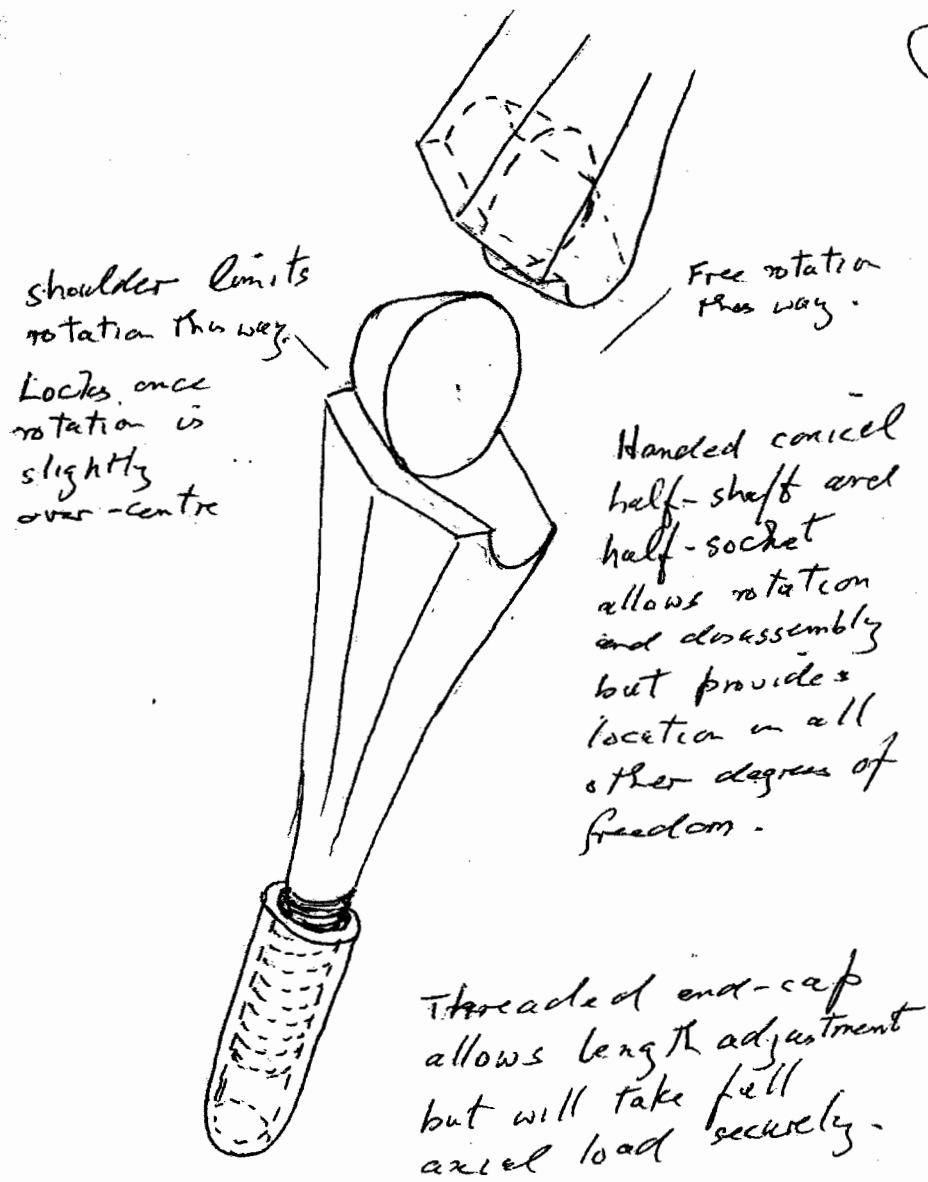 shoulder limits
rotation this way.
Locks once
rotation is
slightly
over-centre
Free rotation
this way.
Handed conical
half-shaft and
half-socket
allows rotation
and disassembly
but provides
location in all
other degrees of
freedom.
Threaded end-cap
allows length adjustment
but will take full
axial load securely.